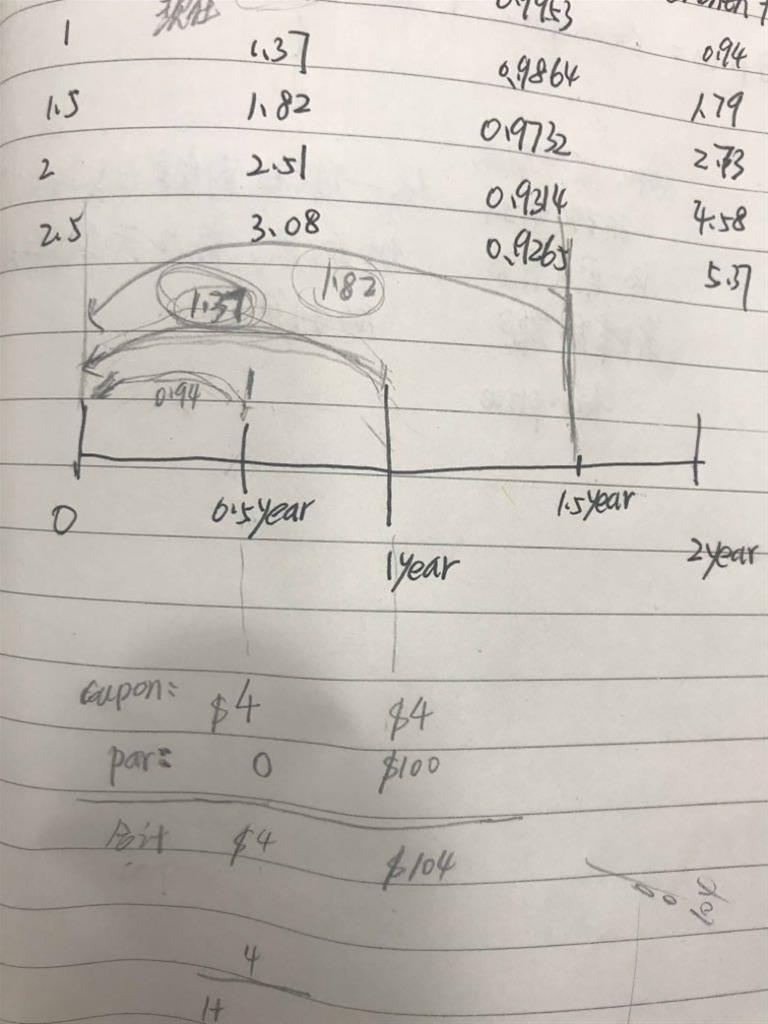 现在 0.9953
1 1.37 0.9864 0.94
1.5 1.82 0.9732 1.79
2 2.51 0.9314 2.73
2.5 3.08 0.9265 4.58
5.37
1.37 1.82
0.94
0 0.5year 1year 1.5year 2year
coupon: $4 $4
par: 0 $100
合计 $4 $104
4
1+